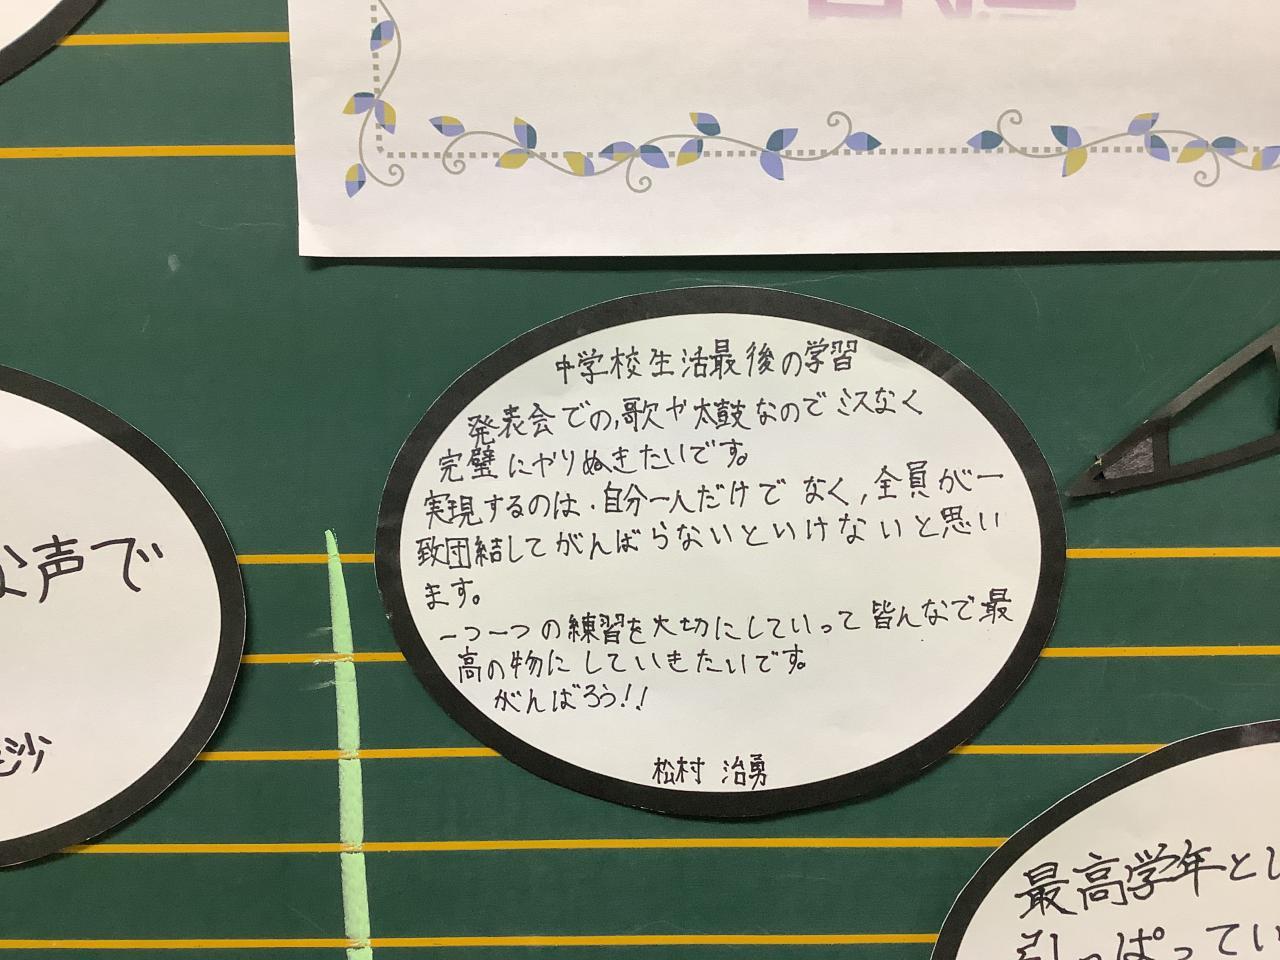 中学校生活最後の学習
発表会での,歌や太鼓なのでミスなく
完璧にやりぬきたいです。
実現するのは、自分一人だけでなく,全員が一
致団結してがんばらないといけないと思い
ます。
一つ一つの練習を大切にしていって皆んなで最
高の物にしていきたいです。
がんばろう!!
松村 治勇
な声で
沙
最高学年とし
引っぱってい